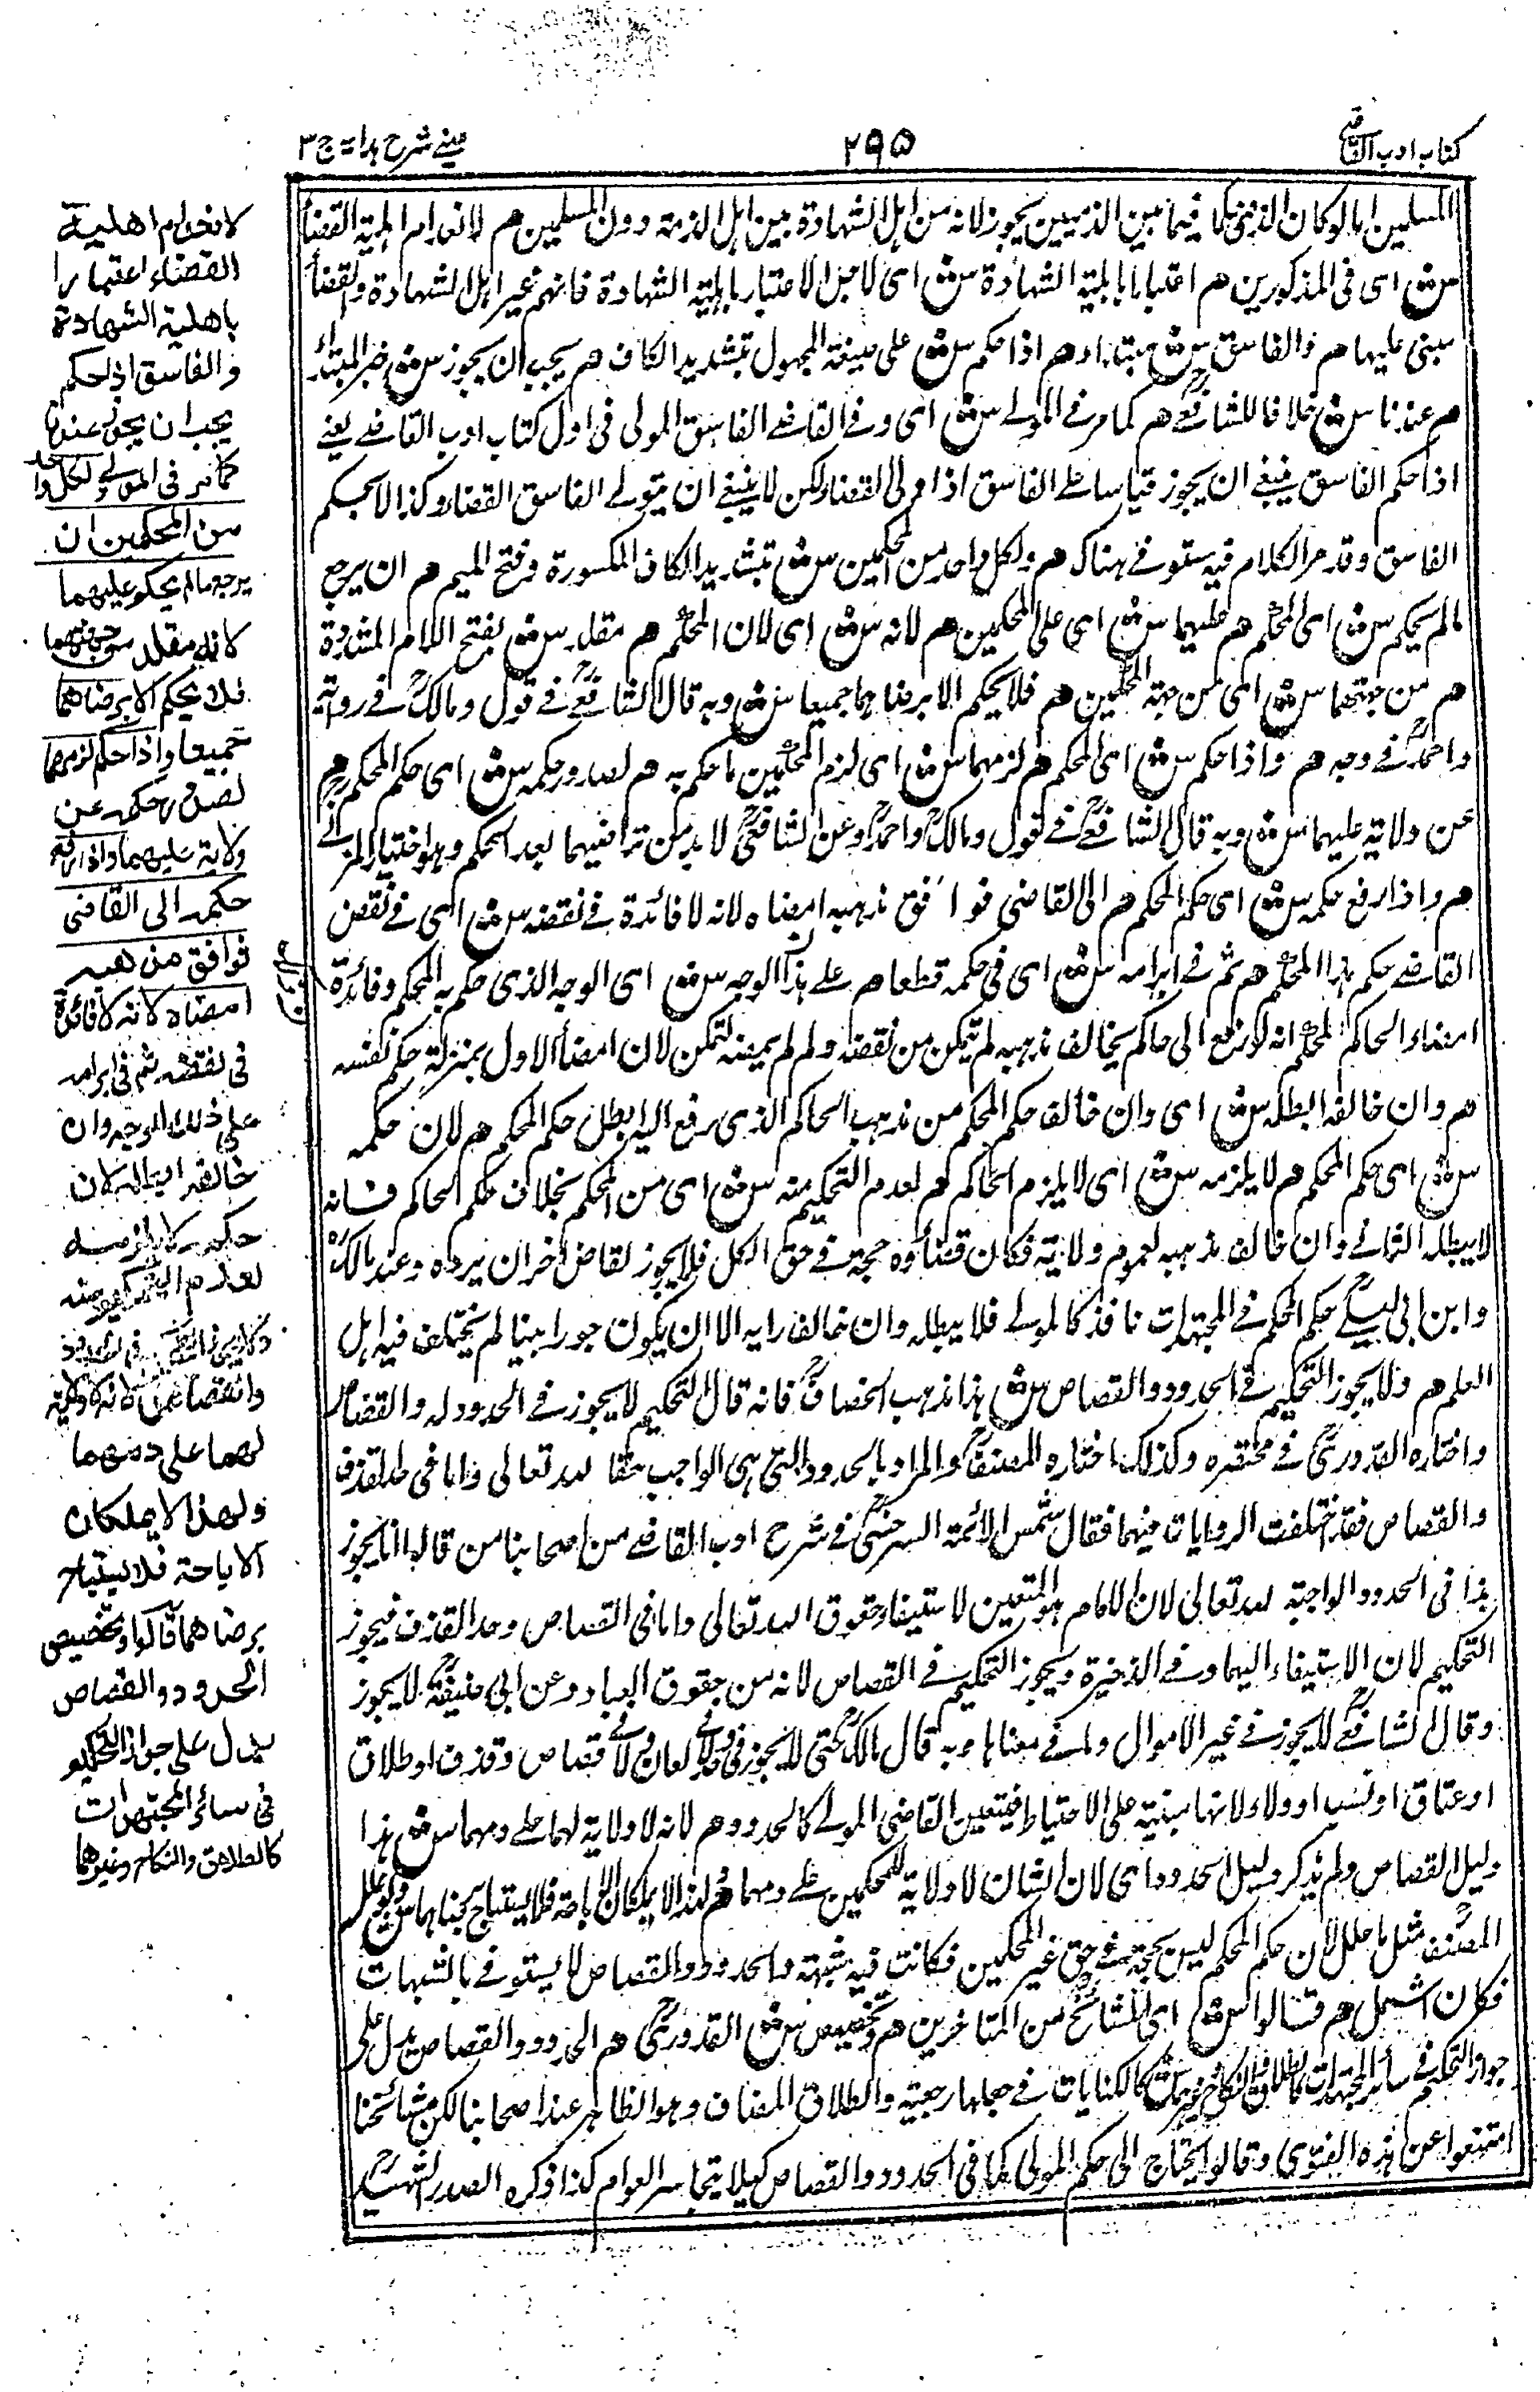 كتاب ادب القاضي
٢٩٥
عيني شرح هداية ج ٣
المسلمين اما لو كان الذمي حكما فيما بين الذميين يجوز لانه من اهل الشهادة بين اهل الذمة دون المسلمين هم لانعدام اهلية القضاء
ش اى فى المذكورين هم اعتبارا باهلية الشهادة ش اى لاجل الاعتبار باهلية الشهادة فانهم غير اهل الشهادة والقضاء
مبنى عليها هم والفاسق ش مبتدا وهم اذا حكم ش على صيغة المجهول بتشديد الكاف هم يجب ان يجوز ش خبر المبتدأ
هم عندنا ش خلافا للشافعيؒ هم كما مر في المولى ش اى وفي القاضي الفاسق المولى فى اول كتاب ادب القاضي يعني
اذا حكم الفاسق ينبغي ان يجوز قياسا على الفاسق اذا ولى القضاء ولكن لا ينبغي ان يتولى الفاسق القضاء وكذا لا يحكم
الفاسق وقد مر الكلام فيه مستوفى هناك هم ولكل واحد من المحكمين ش بتشديد الكاف المكسورة وفتح الميم هم ان يرجع
ما لم يحكم ش اى المحكم هم عليهما ش اى على المحكمين هم لانه ش اى لان المحكم هم مقلد ش بفتح اللام المشددة
هم من جهتهما ش اى من جهة المحكمين هم فلا يحكم الا برضاهما جميعا ش وبه قال الشافعيؒ في قول ومالكؒ في رواية
واحمدؒ في وجه هم واذا حكم ش اى المحكم هم لزمهما ش اى لزم المحكمين ما حكم به هم لصدور حكمه ش اى حكم المحكم هم
عن ولاية عليهما ش وبه قال الشافعيؒ في قول ومالكؒ واحمدؒ وعن الشافعيؒ لا بد من تراضيهما بعد الحكم وهو اختيار المزني
هم واذا رفع حكمه ش اى حكم المحكم هم الى القاضى فوافق مذهبه امضاه لانه لا فائدة في نقضه ش اى في نقض
القاضي حكم هذا المحكم هم ثم في ابرامه ش اى فى حكمه قطعا هم على هذا الوجه ش اى الوجه الذى حكم به المحكم وفائدة
امضاء الحاكم المحكم انه لو رفع الى حاكم يخالف مذهبه لم يتمكن من نقضه ولو لم يمضه لتمكن لان امضاء الاول بمنزلة حكم نفسه
هم وان خالفه ابطله ش اى وان خالف حكم المحكم من مذهب الحاكم الذى رفع اليه ابطل حكم المحكم هم لان حكمه
ش اى حكم المحكم هم لا يلزمه ش اى لا يلزم الحاكم هم لعدم التحكيم منه ش اى من المحكم بخلاف حكم الحاكم فانه
لا يبطله الثاني وان خالف مذهبه لعموم ولايته فكان قضاؤه حجة في حق الكل فلا يجوز لقاض اخر ان يرده وعند مالكؒ
وابن ابى ليلى حكم المحكم في المجتهدات نافذ كالمولى فلا يبطله وان خالف رايه الا ان يكون جورا بينا لم يختلف فيه اهل
العلم هم ولا يجوز التحكيم في الحدود والقصاص ش هذا مذهب الخصافؒ فانه قال التحكيم لا يجوز في الحدود والقصاص
واختاره القدوريؒ في مختصره وكذلك اختاره المصنفؒ والمراد بالحدود التى هى الواجب حقا لله تعالى واما فى حد القذف
والقصاص فقد اختلفت الروايات فيهما فقال شمس الائمة السرخسيؒ في شرح ادب القاضي من اصحابنا من قال انما يجوز
هذا فى الحدود الواجبة لله تعالى لان الامام هو المتعين لاستيفاء حقوق الله تعالى واما فى القصاص وحد القذف فيجوز
التحكيم لان الاستيفاء اليهما وفي الذخيرة ويجوز التحكيم في القصاص لانه من حقوق العباد وعن ابى حنيفةؒ لا يجوز
وقال الشافعيؒ لا يجوز في غير الاموال وما في معناها وبه قال مالكؒ حتى لا يجوز في ولاء ولا لعان ولا في قصاص وقذف او طلاق
او عتاق او نسب او ولاء لانها مبنية على الاحتياط فيتعين القاضى المولى كالحدود هم لانه لا ولاية لهما على دمهما ش هذا
دليل القصاص ولم يذكر دليل الحدود اى لان الشان لا ولاية للمحكمين على دمهما هم ولهذا لا يملكان الاباحة فلا يستباح برضاهما ش ولو علل
المصنفؒ مثل ما علل لان حكم المحكم ليس بحجة في حق غير المحكمين فكانت فيه شبهة والحدود والقصاص لا يستوفى بالشبهات
فكان اشمل هم قالوا ش اى المشائخ من المتاخرين هم وتخصيص ش القدوريؒ هم الحدود والقصاص يدل على
جواز التحكيم في سائر المجتهدات كالطلاق والنكاح وغيرهما ش كالكنايات في جعلها رجعية والطلاق المضاف وهو الظاهر عند اصحابنا لكن مشائخنا
امتنعوا عن هذه الفتوى وقالوا يحتاج الى حكم المولى كما فى الحدود والقصاص كيلا يتجاسر العوام كذا ذكره الصدر الشهيدؒ
لانعدام اهلية
القضاء اعتبارا
باهلية الشهادة
والفاسق اذا حكم
يجب ان يجوز عندنا
كما مر فى المولى ولكل واحد
من المحكمين ان
يرجع ما لم يحكم عليهما
لانه مقلد من جهتهما
فلا يحكم الا برضاهما
جميعا واذا حكم لزمهما
لصدور حكمه عن
ولاية عليهما واذا رفع
حكمه الى القاضى
فوافق مذهبه
امضاه لانه لا فائدة
فى نقضه ثم فى ابرامه
على ذلك الوجه وان
خالفه ابطله لان
حكمه لا يلزمه
لعدم التحكيم منه
ولا يجوز التحكيم فى الحدود
والقصاص لانه لا ولاية
لهما على دمهما
ولهذا لا يملكان
الاباحة فلا يستباح
برضاهما قالوا وتخصيص
الحدود والقصاص
يدل على جواز التحكيم
فى سائر المجتهدات
كالطلاق والنكاح وغيرهما